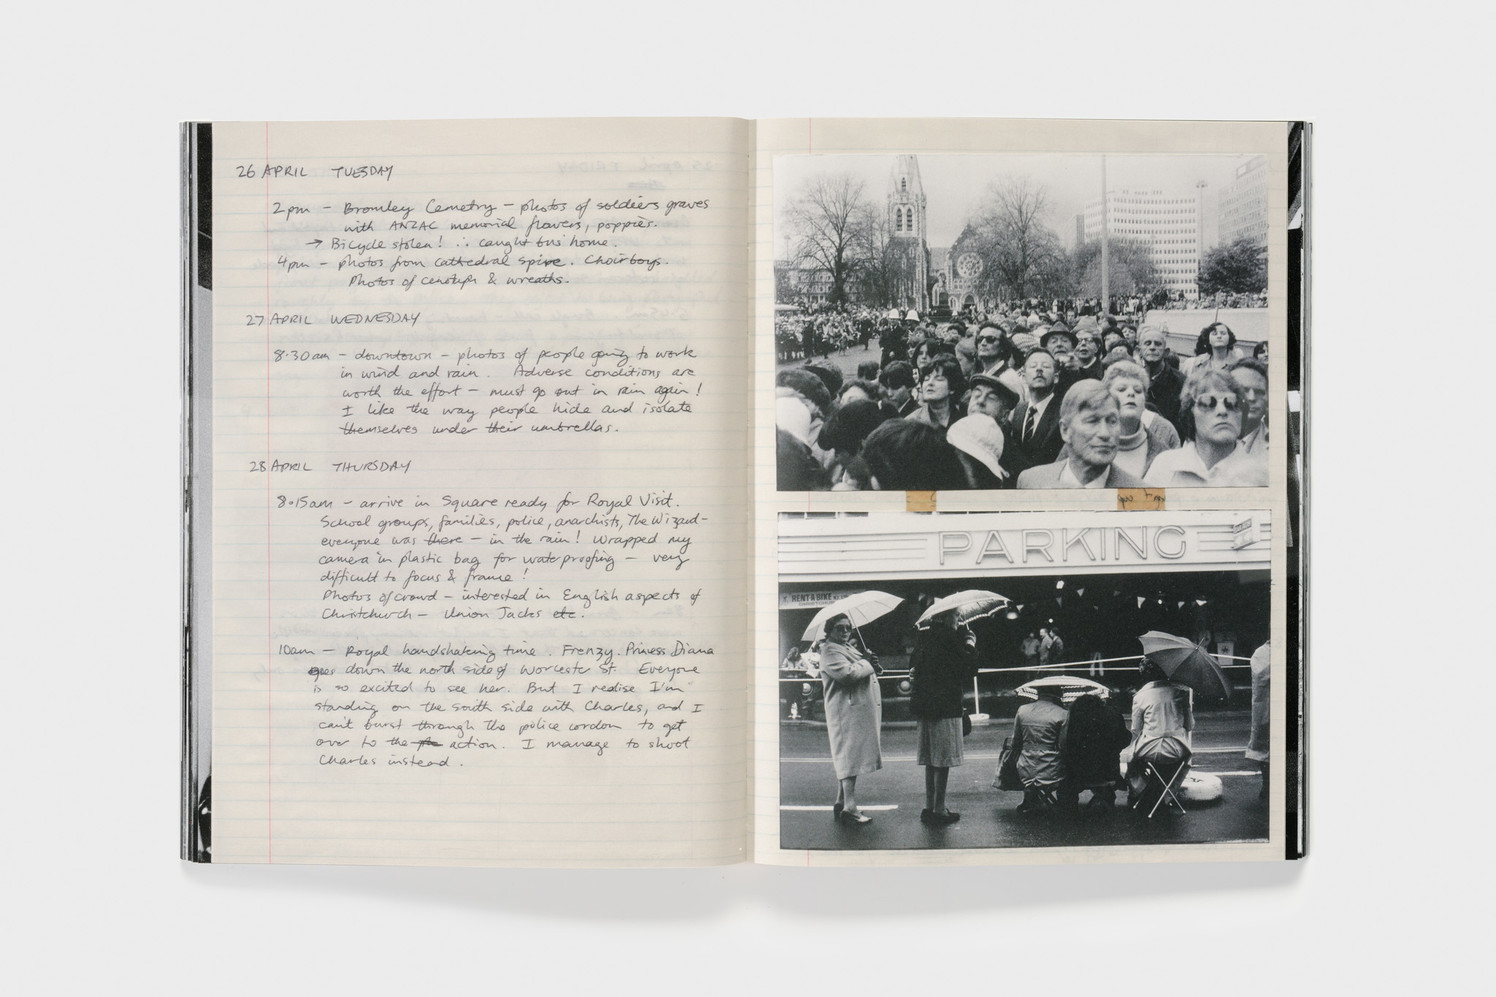 26 APRIL TUESDAY
2pm – Bromley Cemetry – photos of soldiers graves
with ANZAC memorial flowers, poppies.
→ Bicycle stolen! ∴ caught bus home.
4pm – photos from cathedral spire. Choirboys.
Photos of cenotaph & wreaths.
27 APRIL WEDNESDAY
8.30am – downtown – photos of people going to work
in wind and rain. Adverse conditions are
worth the effort – must go out in rain again!
I like the way people hide and isolate
themselves under their umbrellas.
28 APRIL THURSDAY
8.15am – arrive in Square ready for Royal Visit.
School groups, families, police, anarchists, The Wizard –
everyone was there – in the rain! Wrapped my
camera in plastic bag for waterproofing – very
difficult to focus & frame!
Photos of crowd – interested in English aspects of
Christchurch – Union Jacks etc.
10am – Royal handshaking time. Frenzy. Priness Diana
goes down the north side of Worcester St. Everyone
is so excited to see her. But I realise I'm
standing on the south side with Charles, and I
can't burst through the police cordon to get
over to the action. I manage to shoot
Charles instead.
PARKING
RENT A BIKE